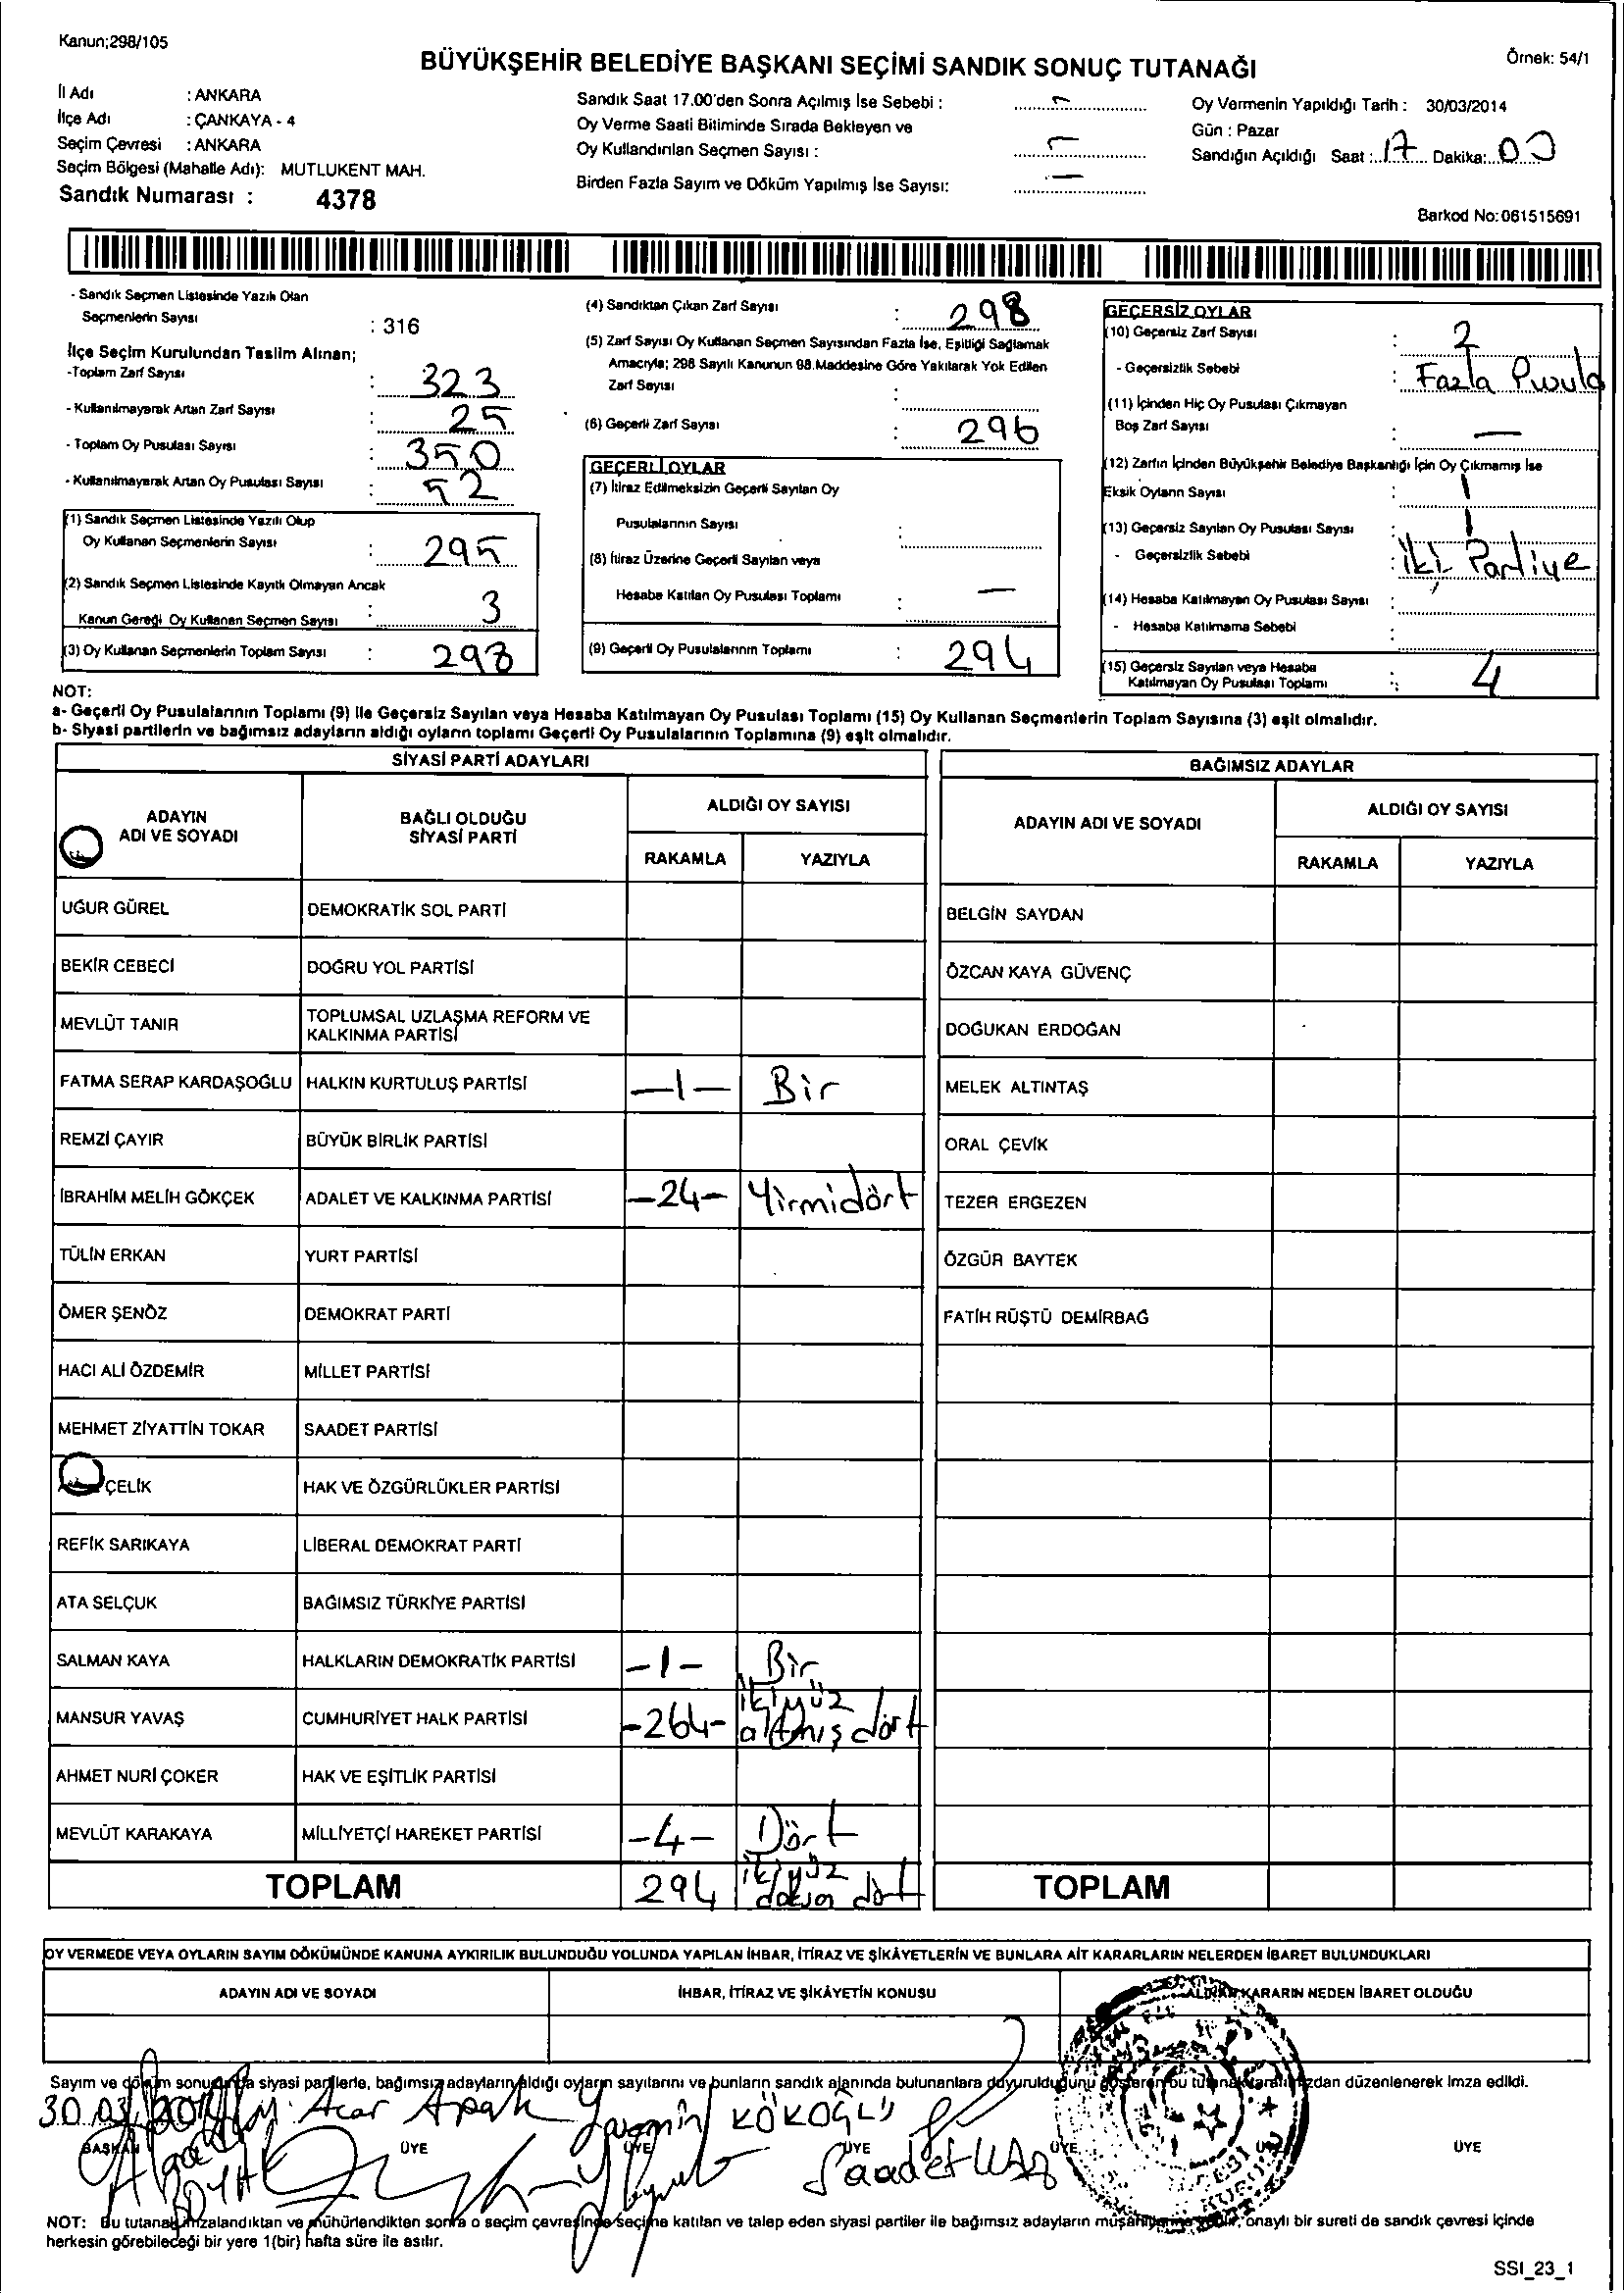 Kanun;298/105
Örnek: 54/1
BÜYÜKŞEHİR BELEDİYE BAŞKANI SEÇİMİ SANDIK SONUÇ TUTANAĞI
İl Adı : ANKARA
İlçe Adı : ÇANKAYA - 4
Seçim Çevresi : ANKARA
Seçim Bölgesi (Mahalle Adı): MUTLUKENT MAH.
Sandık Numarası : 4378
Sandık Saat 17.00'den Sonra Açılmış İse Sebebi : —
Oy Verme Saati Bitiminde Sırada Bekleyen ve
Oy Kullandırılan Seçmen Sayısı : —
Birden Fazla Sayım ve Döküm Yapılmış İse Sayısı: —
Oy Vermenin Yapıldığı Tarih : 30/03/2014
Gün : Pazar
Sandığın Açıldığı Saat : 17 Dakika: 00
Barkod No: 061515691
- Sandık Seçmen Listesinde Yazılı Olan
Seçmenlerin Sayısı : 316
İlçe Seçim Kurulundan Teslim Alınan;
-Toplam Zarf Sayısı : 323
- Kullanılmayarak Artan Zarf Sayısı : 25
- Toplam Oy Pusulası Sayısı : 350
- Kullanılmayarak Artan Oy Pusulası Sayısı : 52
(1) Sandık Seçmen Listesinde Yazılı Olup
Oy Kullanan Seçmenlerin Sayısı : 295
(2) Sandık Seçmen Listesinde Kayıtlı Olmayan Ancak
Kanun Gereği Oy Kullanan Seçmen Sayısı : 3
(3) Oy Kullanan Seçmenlerin Toplam Sayısı : 298
(4) Sandıktan Çıkan Zarf Sayısı : 298
(5) Zarf Sayısı Oy Kullanan Seçmen Sayısından Fazla İse, Eşitliği Sağlamak
Amacıyla; 298 Sayılı Kanunun 98.Maddesine Göre Yakılarak Yok Edilen
Zarf Sayısı :
(6) Geçerli Zarf Sayısı : 296
GEÇERLİ OYLAR
(7) İtiraz Edilmeksizin Geçerli Sayılan Oy
Pusulalarının Sayısı :
(8) İtiraz Üzerine Geçerli Sayılan veya
Hesaba Katılan Oy Pusulası Toplamı : —
(9) Geçerli Oy Pusulalarının Toplamı : 294
GEÇERSİZ OYLAR
(10) Geçersiz Zarf Sayısı : 2
- Geçersizlik Sebebi : Fazla Pusula
(11) İçinden Hiç Oy Pusulası Çıkmayan
Boş Zarf Sayısı : —
(12) Zarfın İçinden Büyükşehir Belediye Başkanlığı İçin Oy Çıkmamış İse
Eksik Oyların Sayısı : 1
(13) Geçersiz Sayılan Oy Pusulası Sayısı : 1
- Geçersizlik Sebebi : İki Partiye
(14) Hesaba Katılmayan Oy Pusulası Sayısı :
- Hesaba Katılmama Sebebi :
(15) Geçersiz Sayılan veya Hesaba
Katılmayan Oy Pusulası Toplamı : 4
NOT:
a- Geçerli Oy Pusulalarının Toplamı (9) ile Geçersiz Sayılan veya Hesaba Katılmayan Oy Pusulası Toplamı (15) Oy Kullanan Seçmenlerin Toplam Sayısına (3) eşit olmalıdır.
b- Siyasi partilerin ve bağımsız adayların aldığı oyların toplamı Geçerli Oy Pusulalarının Toplamına (9) eşit olmalıdır.
SİYASİ PARTİ ADAYLARI
ADAYIN ADI VE SOYADI BAĞLI OLDUĞU SİYASİ PARTİ ALDIĞI OY SAYISI
RAKAMLA YAZIYLA
UĞUR GÜREL DEMOKRATİK SOL PARTİ
BEKİR CEBECİ DOĞRU YOL PARTİSİ
MEVLÜT TANIR TOPLUMSAL UZLAŞMA REFORM VE KALKINMA PARTİSİ
FATMA SERAP KARDAŞOĞLU HALKIN KURTULUŞ PARTİSİ —1— Bir
REMZİ ÇAYIR BÜYÜK BİRLİK PARTİSİ
İBRAHİM MELİH GÖKÇEK ADALET VE KALKINMA PARTİSİ -24- Yirmidört
TÜLİN ERKAN YURT PARTİSİ
ÖMER ŞENÖZ DEMOKRAT PARTİ
HACI ALİ ÖZDEMİR MİLLET PARTİSİ
MEHMET ZİYATTİN TOKAR SAADET PARTİSİ
ÇELİK HAK VE ÖZGÜRLÜKLER PARTİSİ
REFİK SARIKAYA LİBERAL DEMOKRAT PARTİ
ATA SELÇUK BAĞIMSIZ TÜRKİYE PARTİSİ
SALMAN KAYA HALKLARIN DEMOKRATİK PARTİSİ -1- Bir
MANSUR YAVAŞ CUMHURİYET HALK PARTİSİ -264- ikiyüz altmış dört
AHMET NURİ ÇOKER HAK VE EŞİTLİK PARTİSİ
MEVLÜT KARAKAYA MİLLİYETÇİ HAREKET PARTİSİ -4- Dört
TOPLAM 294 ikiyüz doksan dört
BAĞIMSIZ ADAYLAR
ADAYIN ADI VE SOYADI ALDIĞI OY SAYISI
RAKAMLA YAZIYLA
BELGİN SAYDAN
ÖZCAN KAYA GÜVENÇ
DOĞUKAN ERDOĞAN
MELEK ALTINTAŞ
ORAL ÇEVİK
TEZER ERGEZEN
ÖZGÜR BAYTEK
FATİH RÜŞTÜ DEMİRBAĞ
TOPLAM
OY VERMEDE VEYA OYLARIN SAYIM DÖKÜMÜNDE KANUNA AYKIRILIK BULUNDUĞU YOLUNDA YAPILAN İHBAR, İTİRAZ VE ŞİKÂYETLERİN VE BUNLARA AİT KARARLARIN NELERDEN İBARET BULUNDUKLARI
ADAYIN ADI VE SOYADI İHBAR, İTİRAZ VE ŞİKÂYETİN KONUSU ALINAN KARARIN NEDEN İBARET OLDUĞU
Sayım ve döküm sonucunda siyasi partilerle, bağımsız adayların aldığı oyların sayılarını ve bunların sandık alanında bulunanlara duyurulduğunu gösteren bu tutanak tarafımızdan düzenlenerek imza edildi.
30.03.2014 Acar Yasemin KÖKOĞLU
BAŞKAN ÜYE ÜYE ÜYE ÜYE ÜYE ÜYE
Saadet
NOT: Bu tutanak imzalandıktan ve mühürlendikten sonra o seçim çevresinde seçime katılan ve talep eden siyasi partiler ile bağımsız adayların müşahitlerine verilir, onaylı bir sureti de sandık çevresi içinde
herkesin görebileceği bir yere 1(bir) hafta süre ile asılır.
SSI_23_1